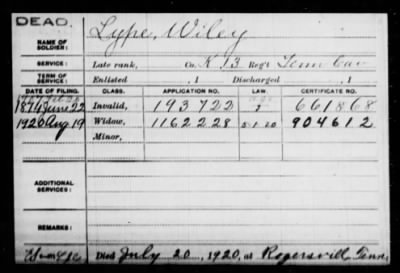 DEAD.
NAME OF SOLDIER: Lype, Wiley
SERVICE: Late rank, Co. K, 13 Reg't Tenn Cav
TERM OF SERVICE: Enlisted , 1 Discharged , 1
DATE OF FILING. CLASS. APPLICATION NO. LAW. CERTIFICATE NO.
1876 June 22 Invalid, 193722 661868
1920 Aug 19 Widow, 1162228 5-1-20 904612
Minor,
ADDITIONAL SERVICES:
REMARKS:
Died July 20, 1920, at Rogersvill, Tenn